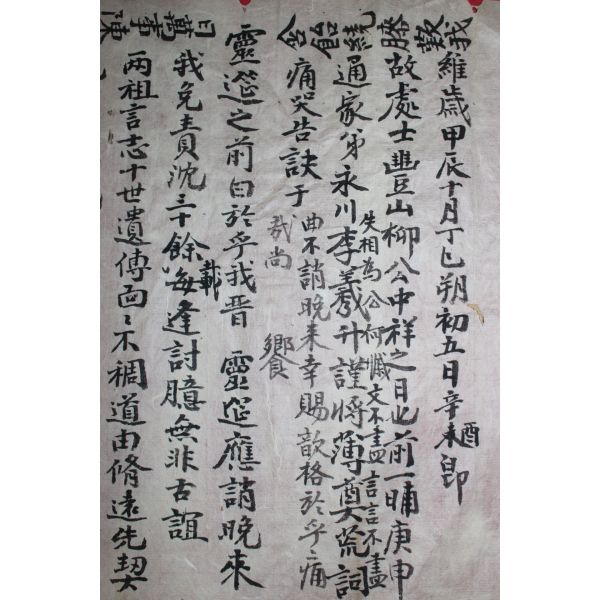 維歲甲辰十月丁巳朔初五日辛酉卽
故處士豊山柳公中祥之日也前一晡庚申
通家弟永川李羲升謹將薄奠荒詞
痛哭告訣于
靈筵之前曰於乎我晋靈筵應誚晩來
我免責沈三十餘載每逢討臆無非古誼
两祖言志十世遺傳面々不稠道由脩遠先契
失相為公何懺文不盡言言不盡
曲不誚晩来幸賜歆格於乎痛
哉尚
饗
我
歎
勝
繞
飴
含
日
萬
事
陳